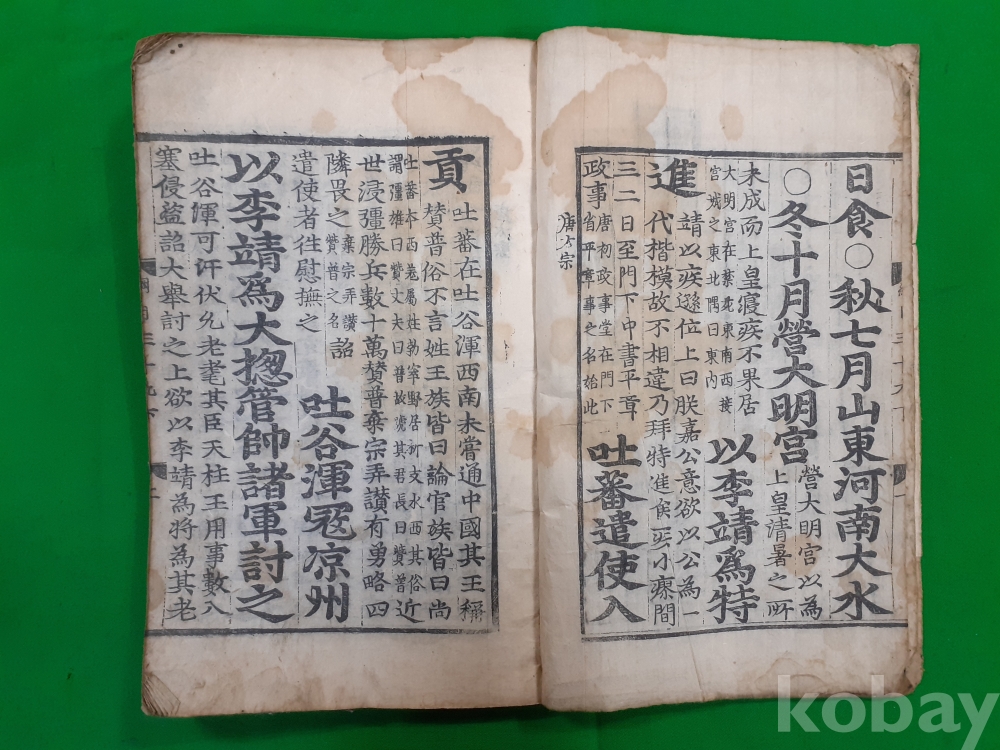 日食○秋七月山東河南大水
○冬十月營大明宮
營大明宮以為
上皇清暑之所
未成而上皇寢疾不果居
大明宮在禁苑東南西接
宮城之東北隅曰東內
以李靖爲特
進
靖以疾遜位上曰朕嘉公意欲以公為一
代楷模故不相違乃拜特進俟疾小瘳間
三二日至門下中書平章
政事
唐初政事堂在門下
省平章事之名始此
吐蕃遣使入
貢
吐蕃在吐谷渾西南未嘗通中國其王稱
贊普俗不言姓王族皆曰論官族皆曰尚
吐蕃本西羌屬姓勃窣野居析支水西其俗
謂彊雄曰贊丈夫曰普故號其君長曰贊普
近
世浸彊勝兵數十萬贊普棄宗弄讚有勇略四
隣畏之
棄宗弄讚
贊普之名
詔
遣使者往慰撫之
吐谷渾冦凉州
以李靖爲大揔管帥諸軍討之
吐谷渾可汗伏允老耄其臣天柱王用事數入
塞侵盗詔大舉討之上欲以李靖為將為其老
kobay